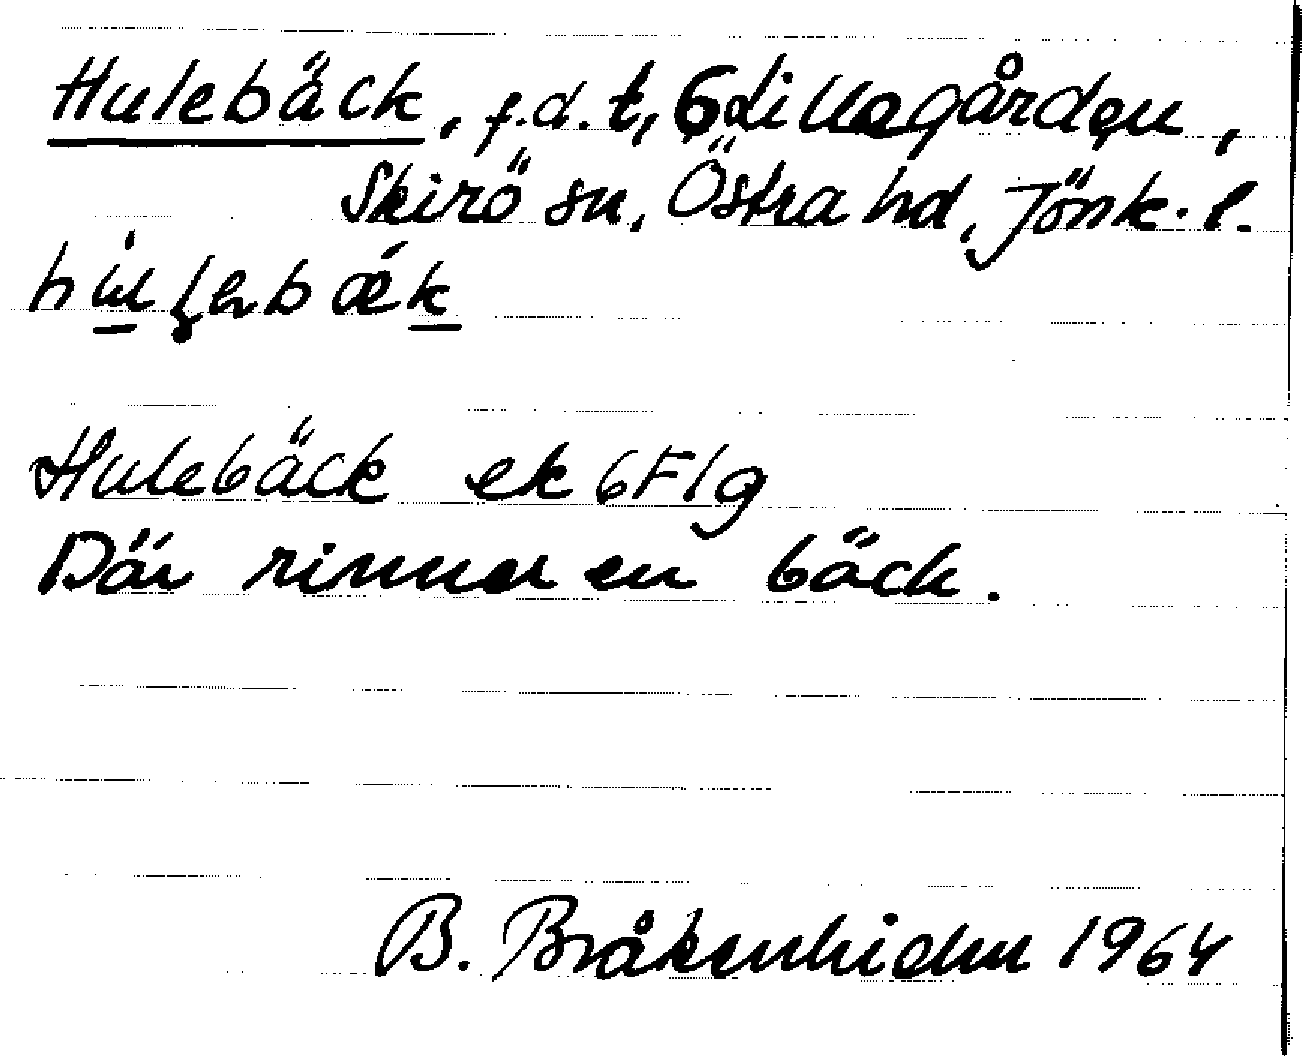 Hulebäck, f.d. t, Lillegården,
Skirö sn, Östra hd, Jönk. l.
Hulebäck ek 6F1g
Där rinner en bäck.
B. Bråkenhielm 1964